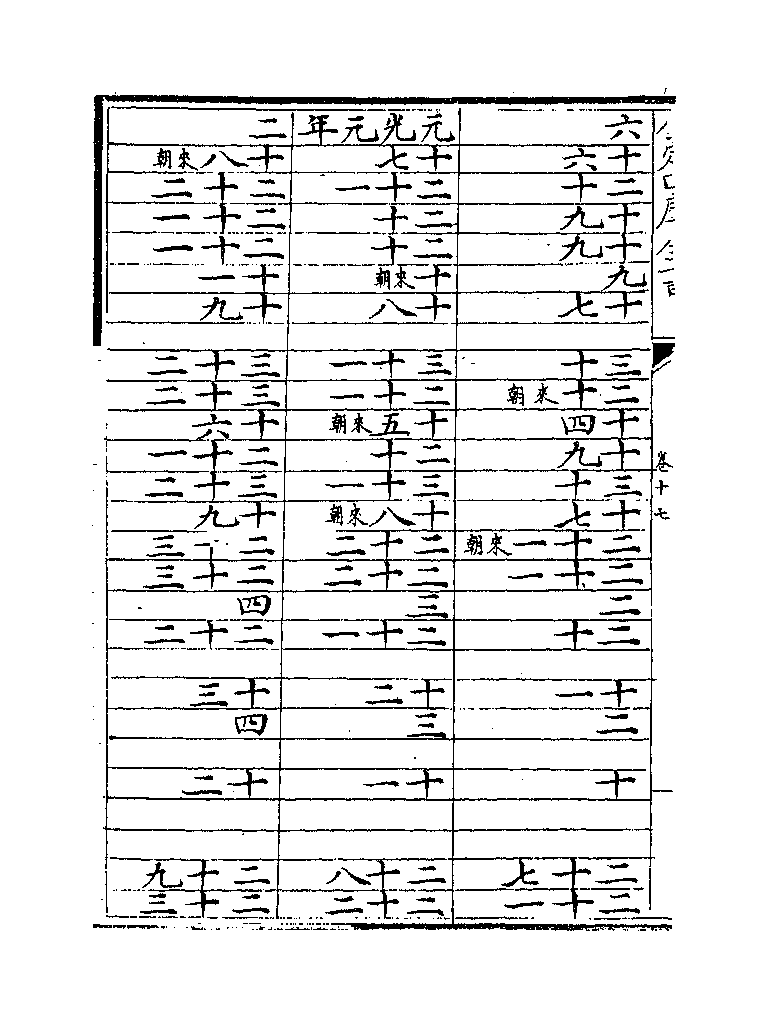 卷十七
六
十六
二十
十九
十九
九
十七
三十
二十來朝
十四
十九
三十
十七
二十一來朝
二十一
二
二十
十一
二
十
二十七
二十一
元光元年
十七
二十一
二十
二十
十來朝
十八
三十一
二十一
十五來朝
二十
三十一
十八來朝
二十二
二十二
三
二十一
十二
三
十一
二十八
二十二
二
十八來朝
二十二
二十一
二十一
十一
十九
三十二
二十二
十六
二十一
三十二
十九
二十三
二十三
四
二十二
十三
四
十二
二十九
二十三